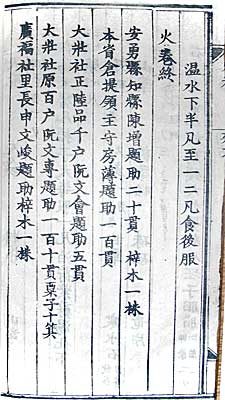 温水下半凡至一二凡食後服
火卷終
安勇縣知縣陳增題助二十貫 梓木一株
本省倉提領主守房薄題助一百貫
大壯社正陸品千户阮文會題助五貫
大壯社原百户阮文專題助一百一十貫 子十箕
廣福社里長申文峻題助梓木一株